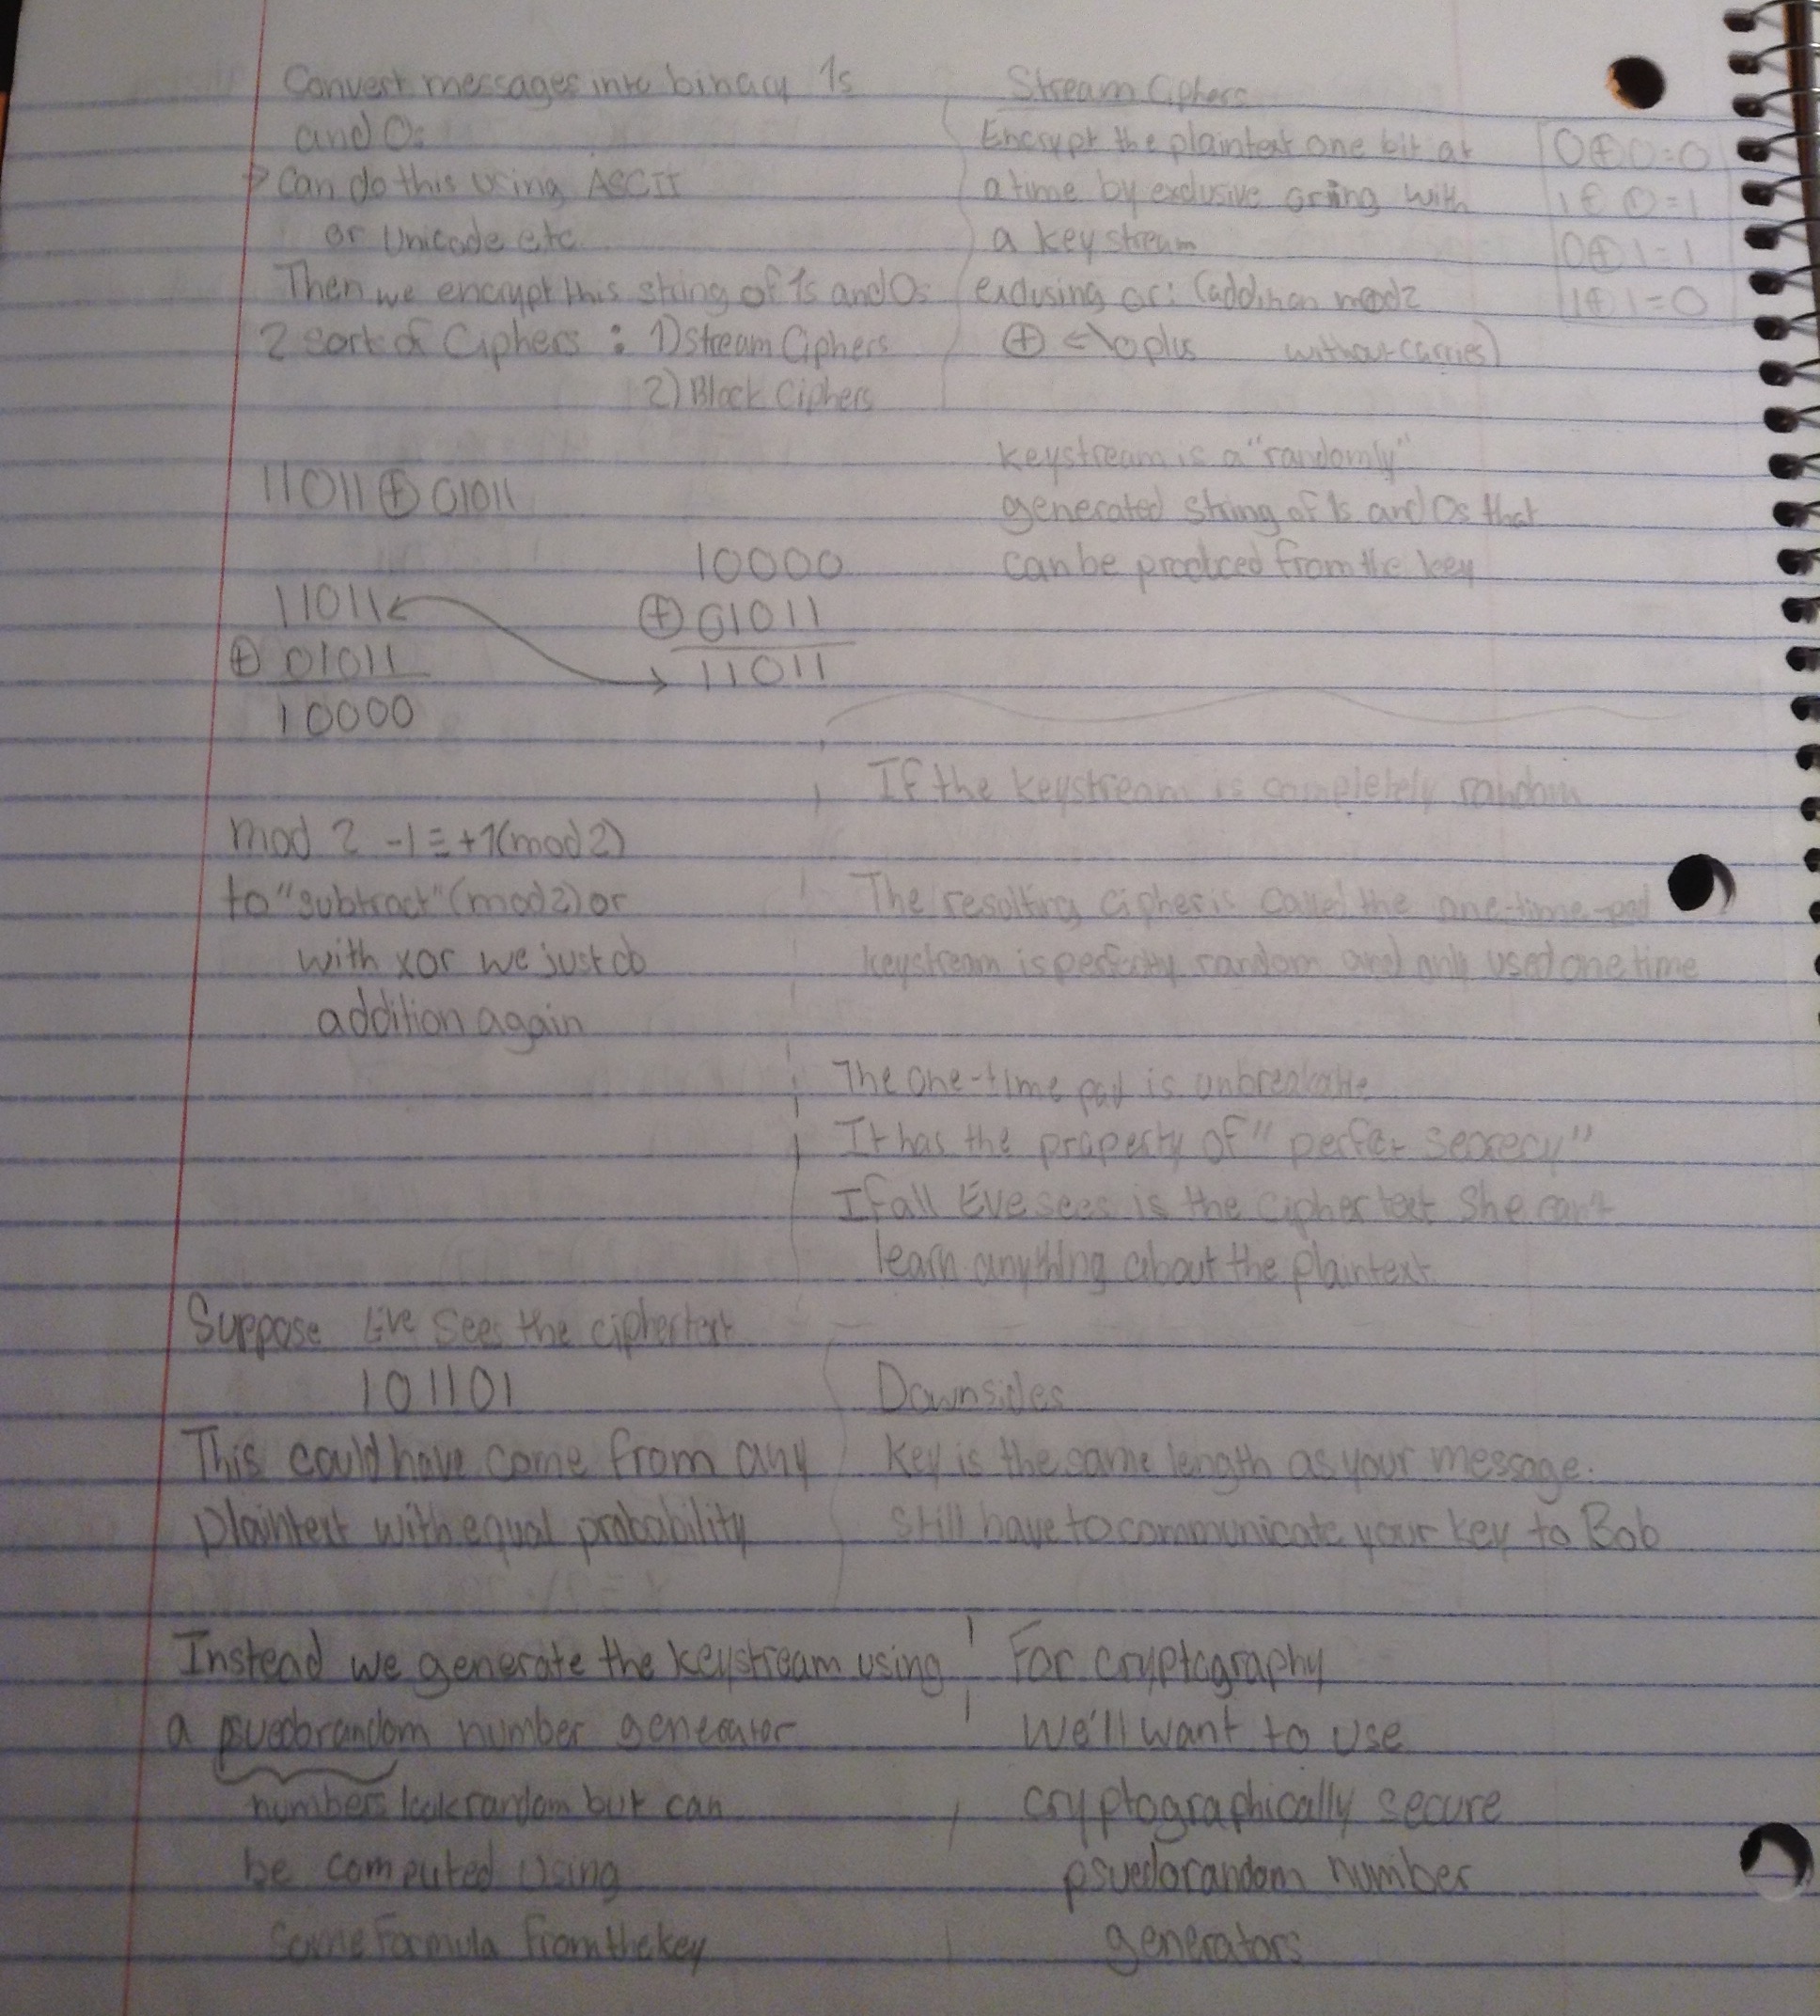 Convert messages into binary 1s
and 0s
> Can do this using ASCII
or Unicode etc
Then we encrypt this string of 1s and 0s
2 sort of Ciphers : 1) Stream Ciphers
2) Block Ciphers
Stream Ciphers
Encrypt the plaintext one bit at
a time by exclusive oring with
a keystream
exclusing or: (addition mod 2
⊕ <- \oplus without carries)
0⊕0=0
1⊕0=1
0⊕1=1
1⊕1=0
11011 ⊕ 01011
11011
⊕ 01011
10000
10000
⊕ 01011
11011
keystream is a "randomly"
generated string of 1s and 0s that
can be produced from the key
mod 2 -1 ≡ +1 (mod 2)
to "subtract" (mod 2) or
with xor we just do
addition again
If the keystream is completely random
The resulting cipher is called the one-time-pad
keystream is perfectly random and only used one time
The one-time pad is unbreakable
It has the property of "perfect secrecy"
If all Eve sees is the cipher text She can't
learn anything about the plaintext
Suppose Eve sees the ciphertext
101101
This could have come from any
plaintext with equal probability
Downsides
Key is the same length as your message.
still have to communicate your key to Bob
Instead we generate the keystream using
a psuedorandom number generator
numbers look random but can
be computed using
some formula from the key
For cryptography
We'll want to use
cryptographically secure
psuedorandom number
generators